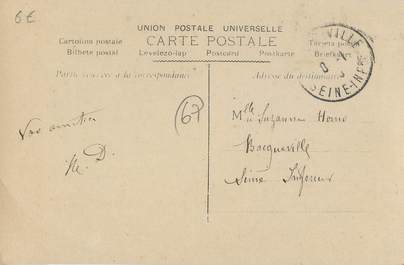 6€
UNION POSTALE UNIVERSELLE
Cartolina postale CARTE POSTALE Tarjeta postal
Bilhete postal Levelezö-lap Postcard Postkarte Briefkaart
VILLE
SEINE-INFRE
Partie réservée à la correspondance Adresse du destinataire
67
Mlle Suzanne Horno
Bacqueville
Seine Inférieure
M. D.